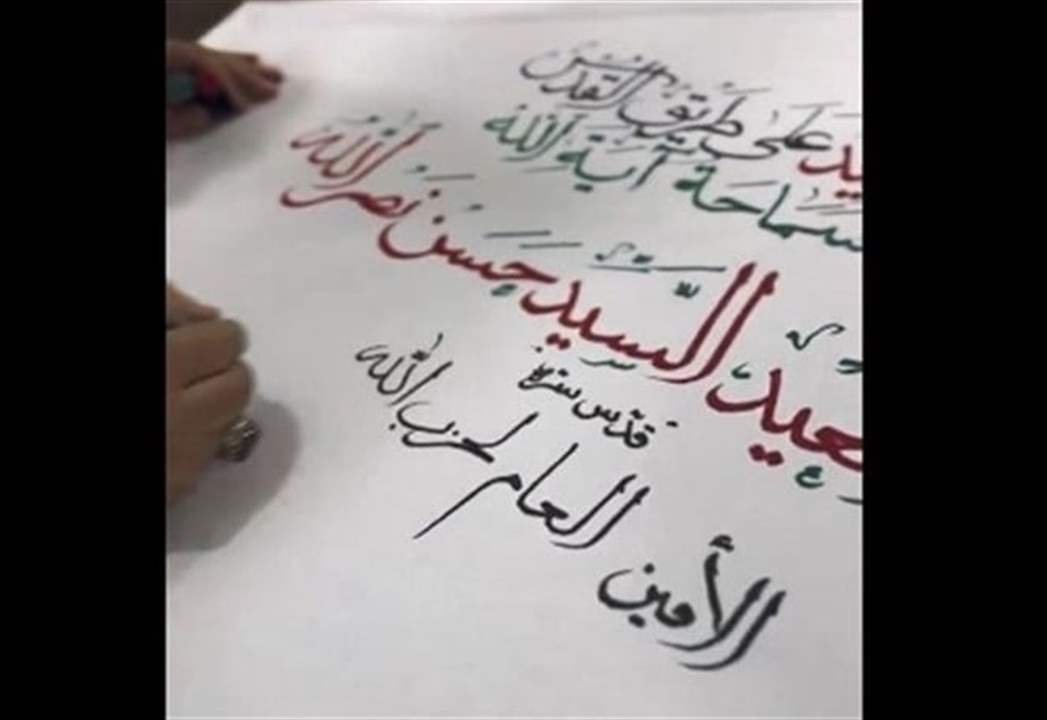 على طريق القدس
سماحة آية الله
السيد حسن نصر الله
قدّس سرّه
الأمين العام لحزب الله